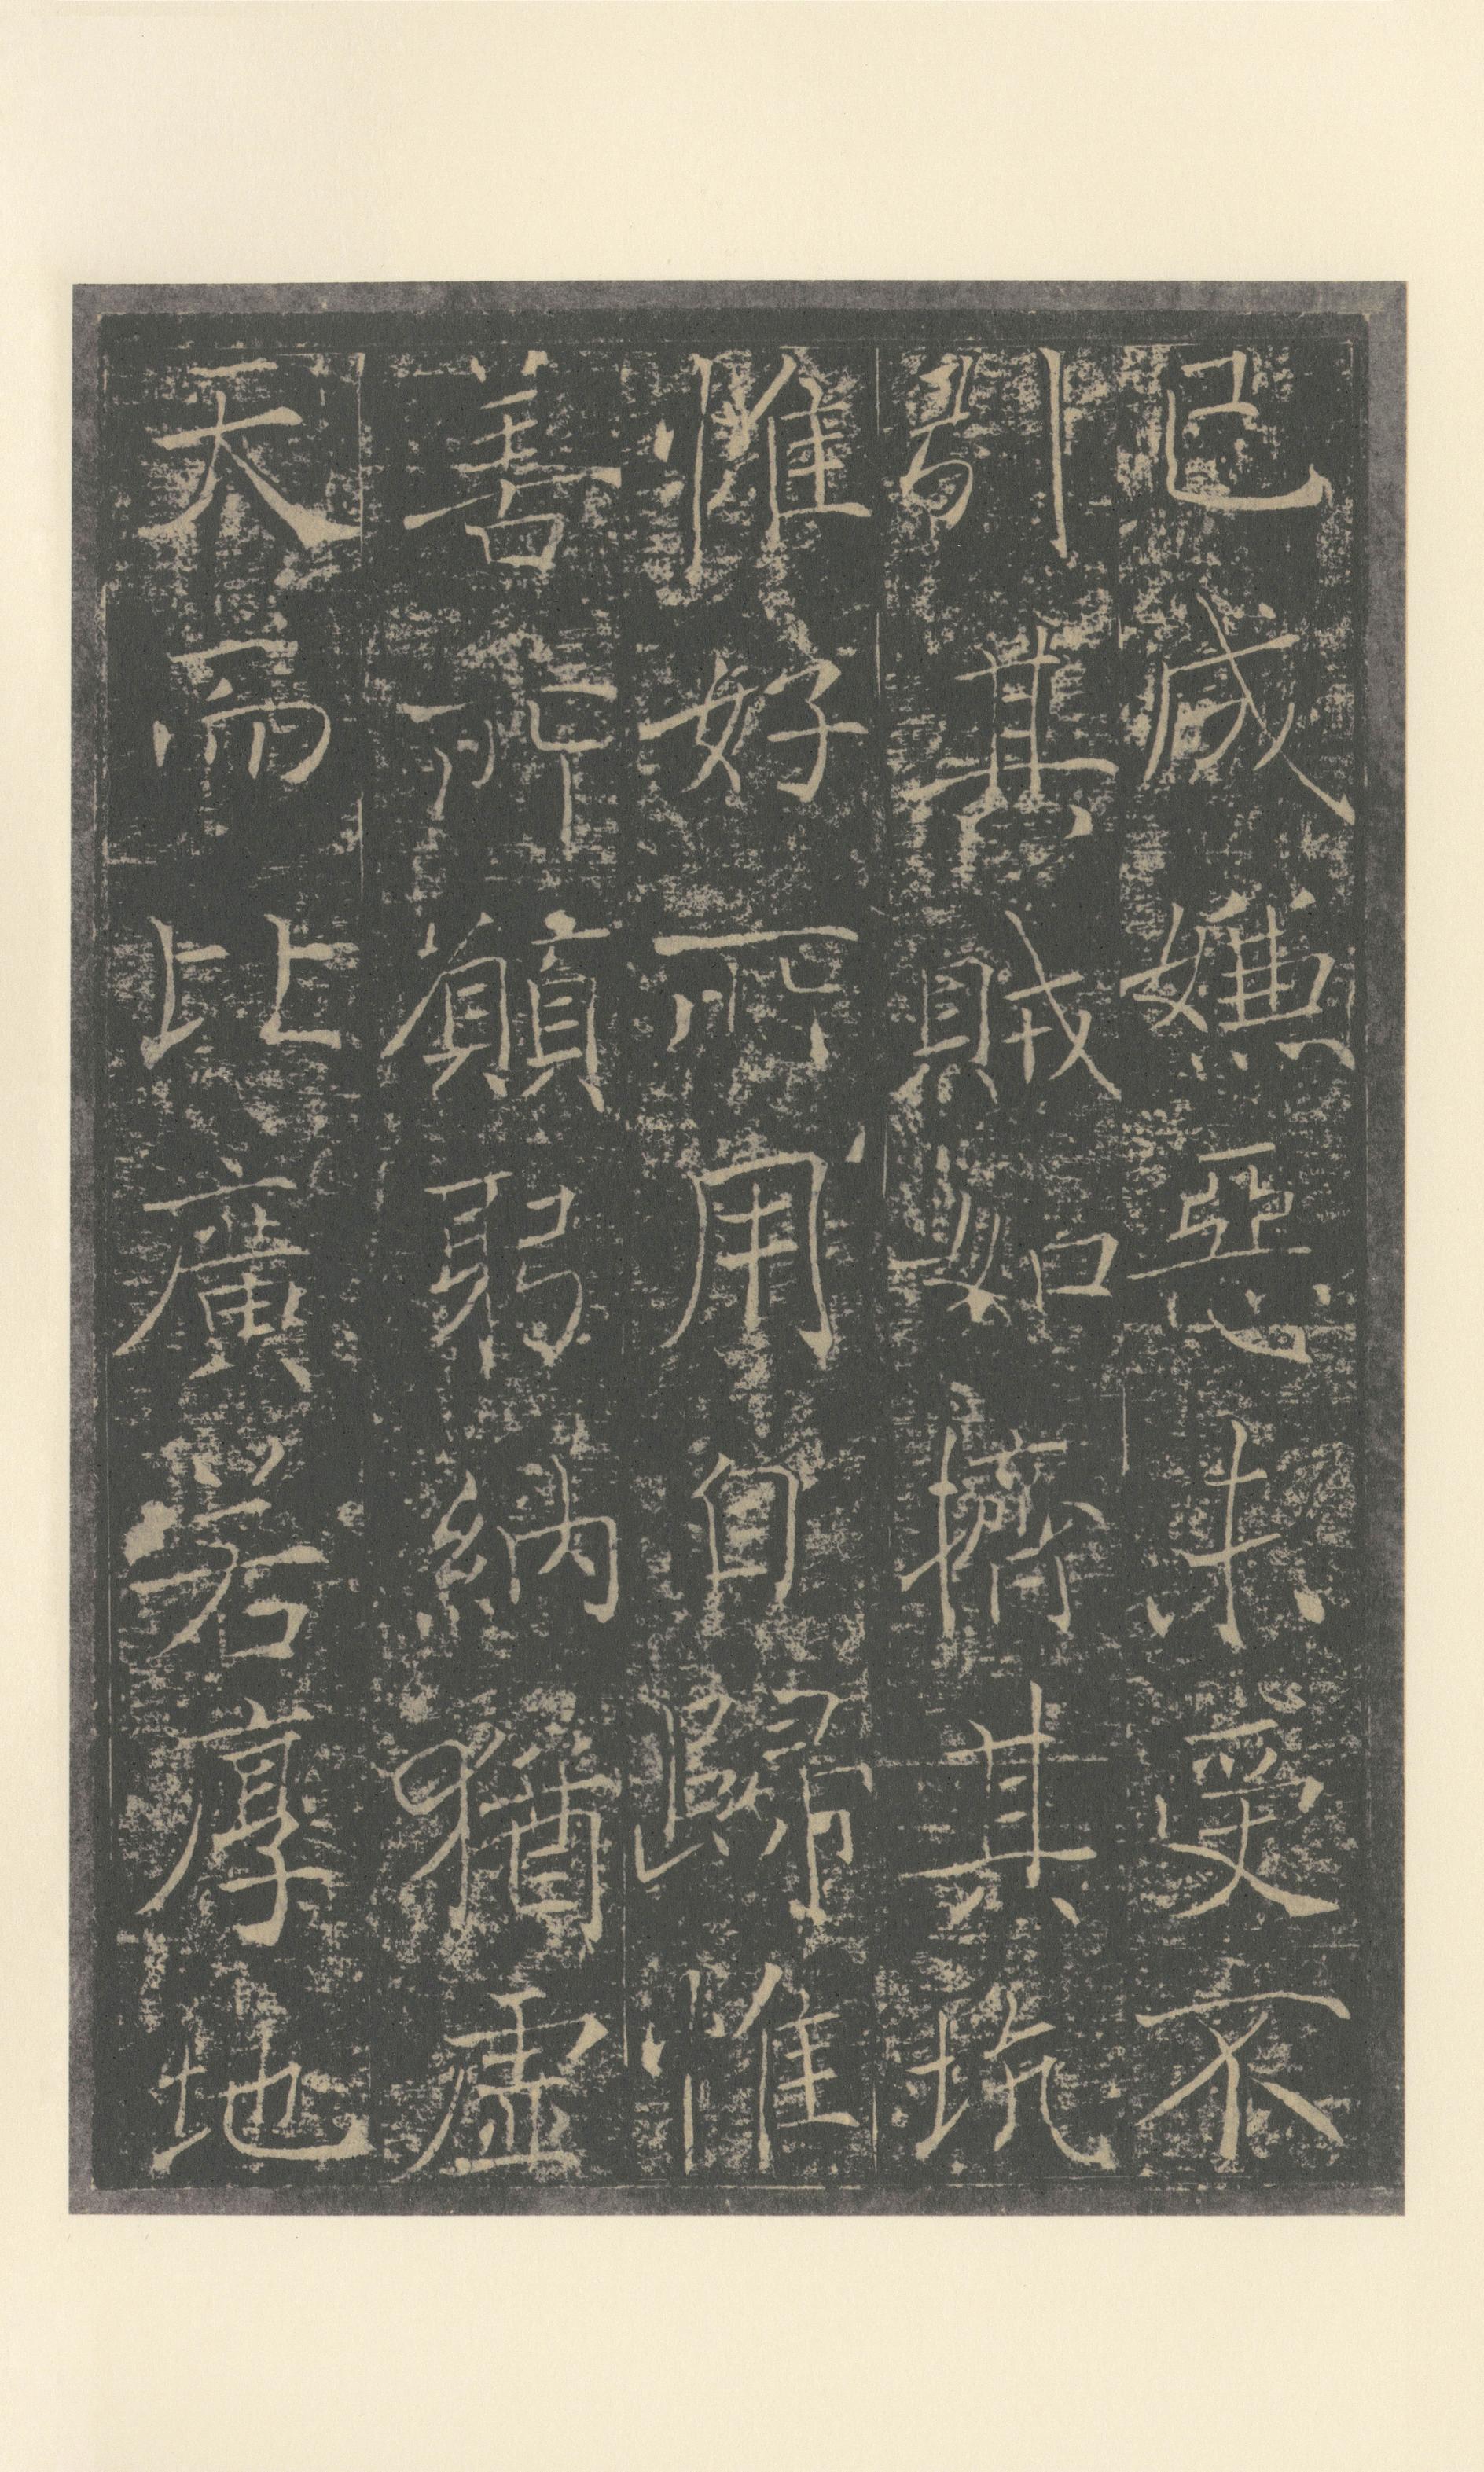 已成嫌惡未受不
引其賊如擠其坑
惟好所用自歸惟
善所願弱納猶虛
天而比廣若厚地